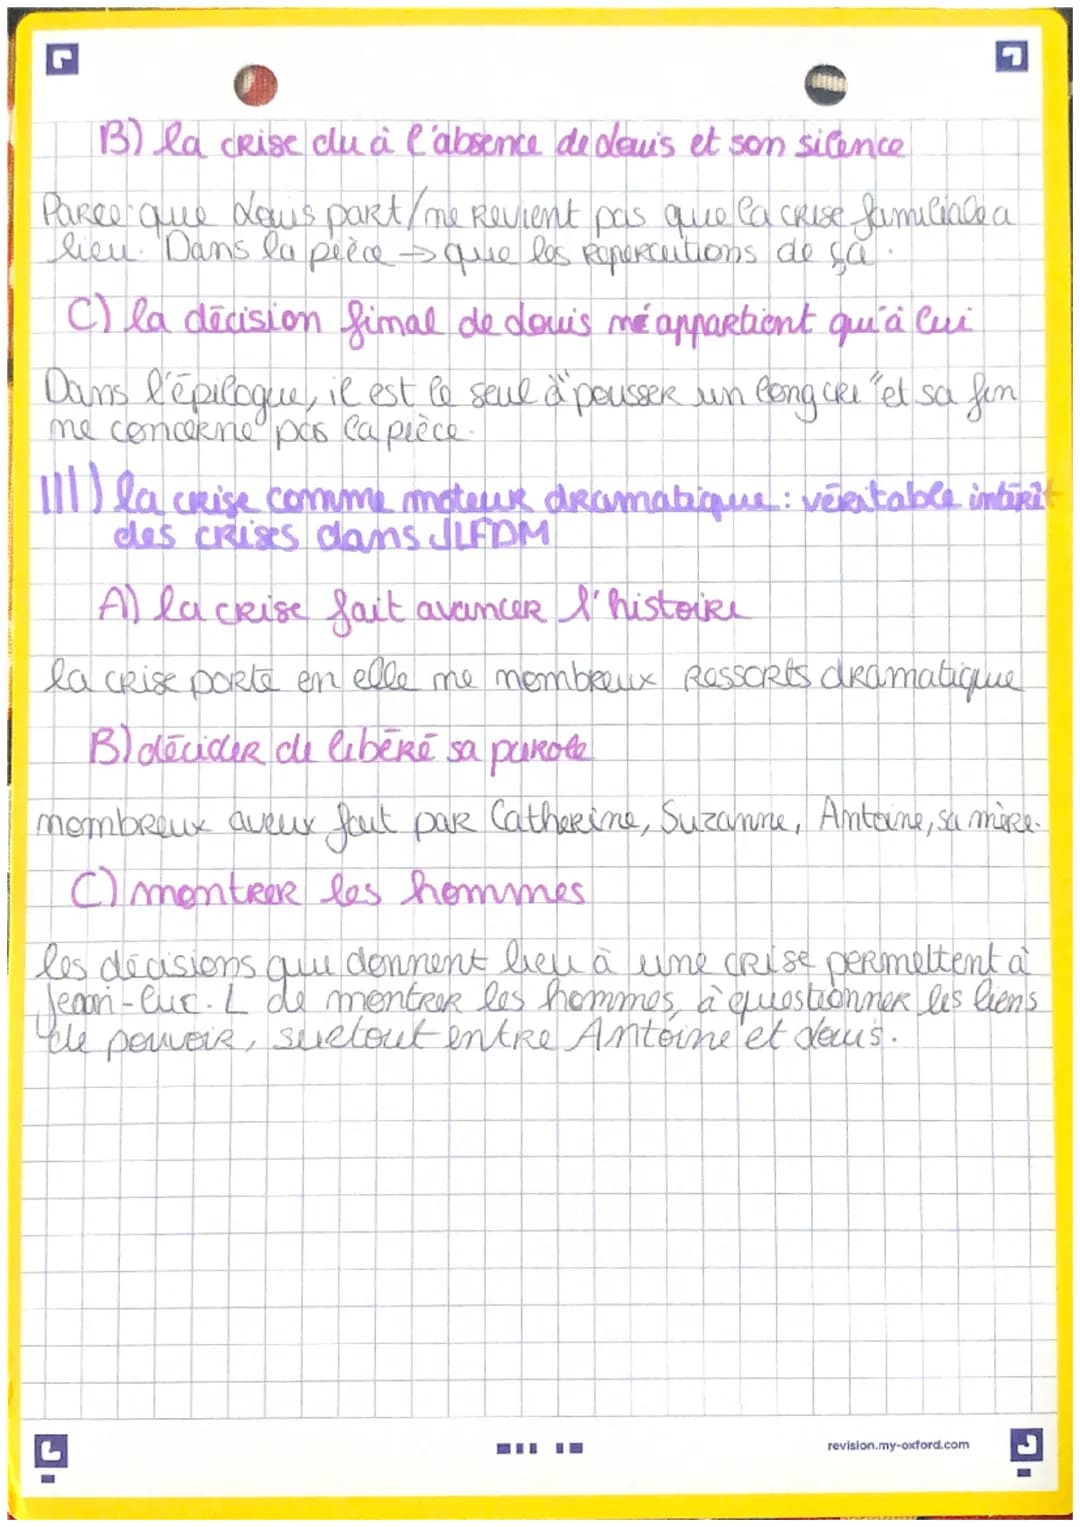 B) la crise du à l'absence de Louis et son silence
Parce que Louis part/ne revient pas que la crise familiale a
lieu. Dans la pièce → que les repercutions de ça.
C) la décision final de Louis n'appartient qu'à lui
Dans l'épilogue, il est le seul à "pousser un long cri" et sa fin
ne concerne pas la pièce.
III) la crise comme moteur dramatique : véritable intérêt
des crises dans JLFDM
A) la crise fait avancer l'histoire
la crise porte en elle me nombreux ressorts dramatique
B) décider de libéré sa parole
nombreux aveux fait par Catherine, Suzanne, Antoine, sa mère.
C) montrer les hommes
les décisions qui donnent lieu à une crise permettent à
Jean-Luc. L de montrer les hommes, à questionner les liens
de pouvoir, surtout entre Antoine et Louis.
revision.my-oxford.com